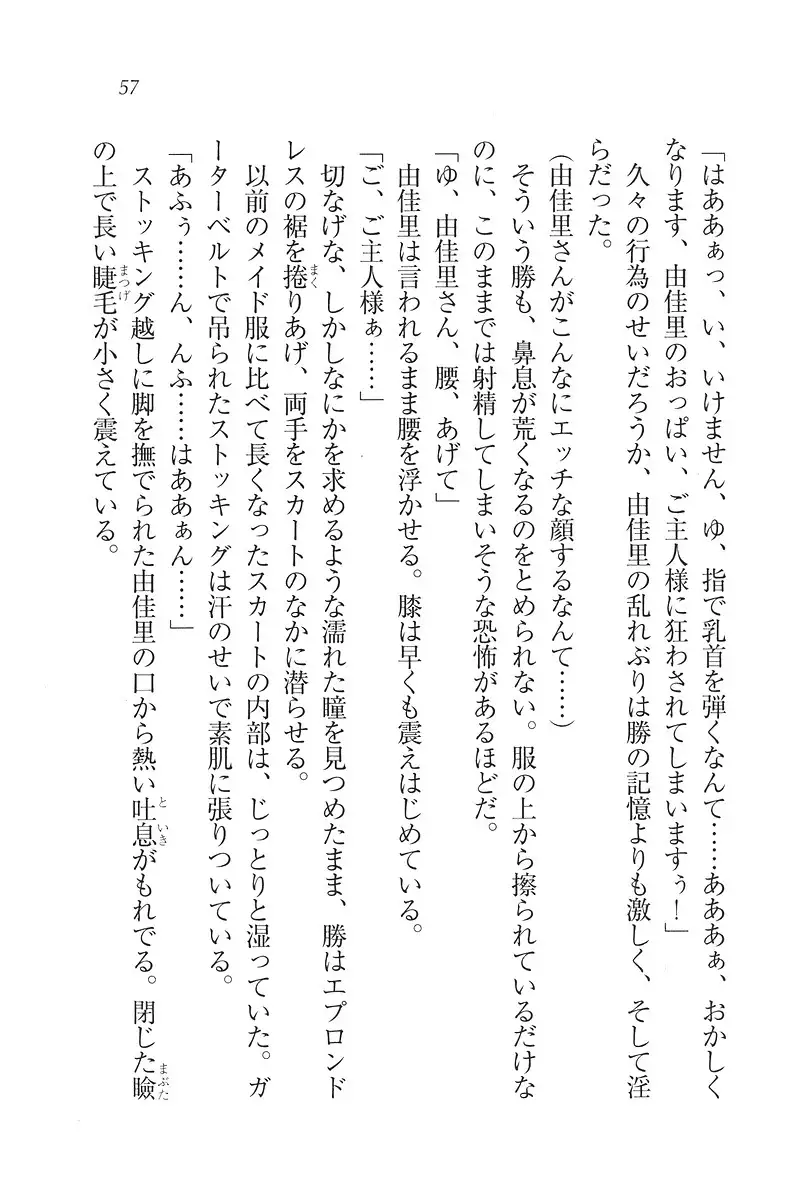 57
「はああぁっ、い、いけません、ゆ、指で乳首を弾くなんて……あああぁ、おかしく
なります、由佳里のおっぱい、ご主人様に狂わされてしまいますぅ！」
久々の行為のせいだろうか、由佳里の乱れぶりは勝の記憶よりも激しく、そして淫
らだった。
（由佳里さんがこんなにエッチな顔するなんて……）
そういう勝も、鼻息が荒くなるのをとめられない。服の上から擦られているだけな
のに、このままでは射精してしまいそうな恐怖があるほどだ。
「ゆ、由佳里さん、腰、あげて」
由佳里は言われるまま腰を浮かせる。膝は早くも震えはじめている。
「ご、ご主人様ぁ……」
切なげな、しかしなにかを求めるような濡れた瞳を見つめたまま、勝はエプロンド
レスの裾を捲りあげ、両手をスカートのなかに潜らせる。
以前のメイド服に比べて長くなったスカートの内部は、じっとりと湿っていた。ガ
ーターベルトで吊られたストッキングは汗のせいで素肌に張りついている。
「あふぅ……ん、んふ……はああぁん……」
ストッキング越しに脚を撫でられた由佳里の口から熱い吐息がもれでる。閉じた瞼
の上で長い睫毛が小さく震えている。